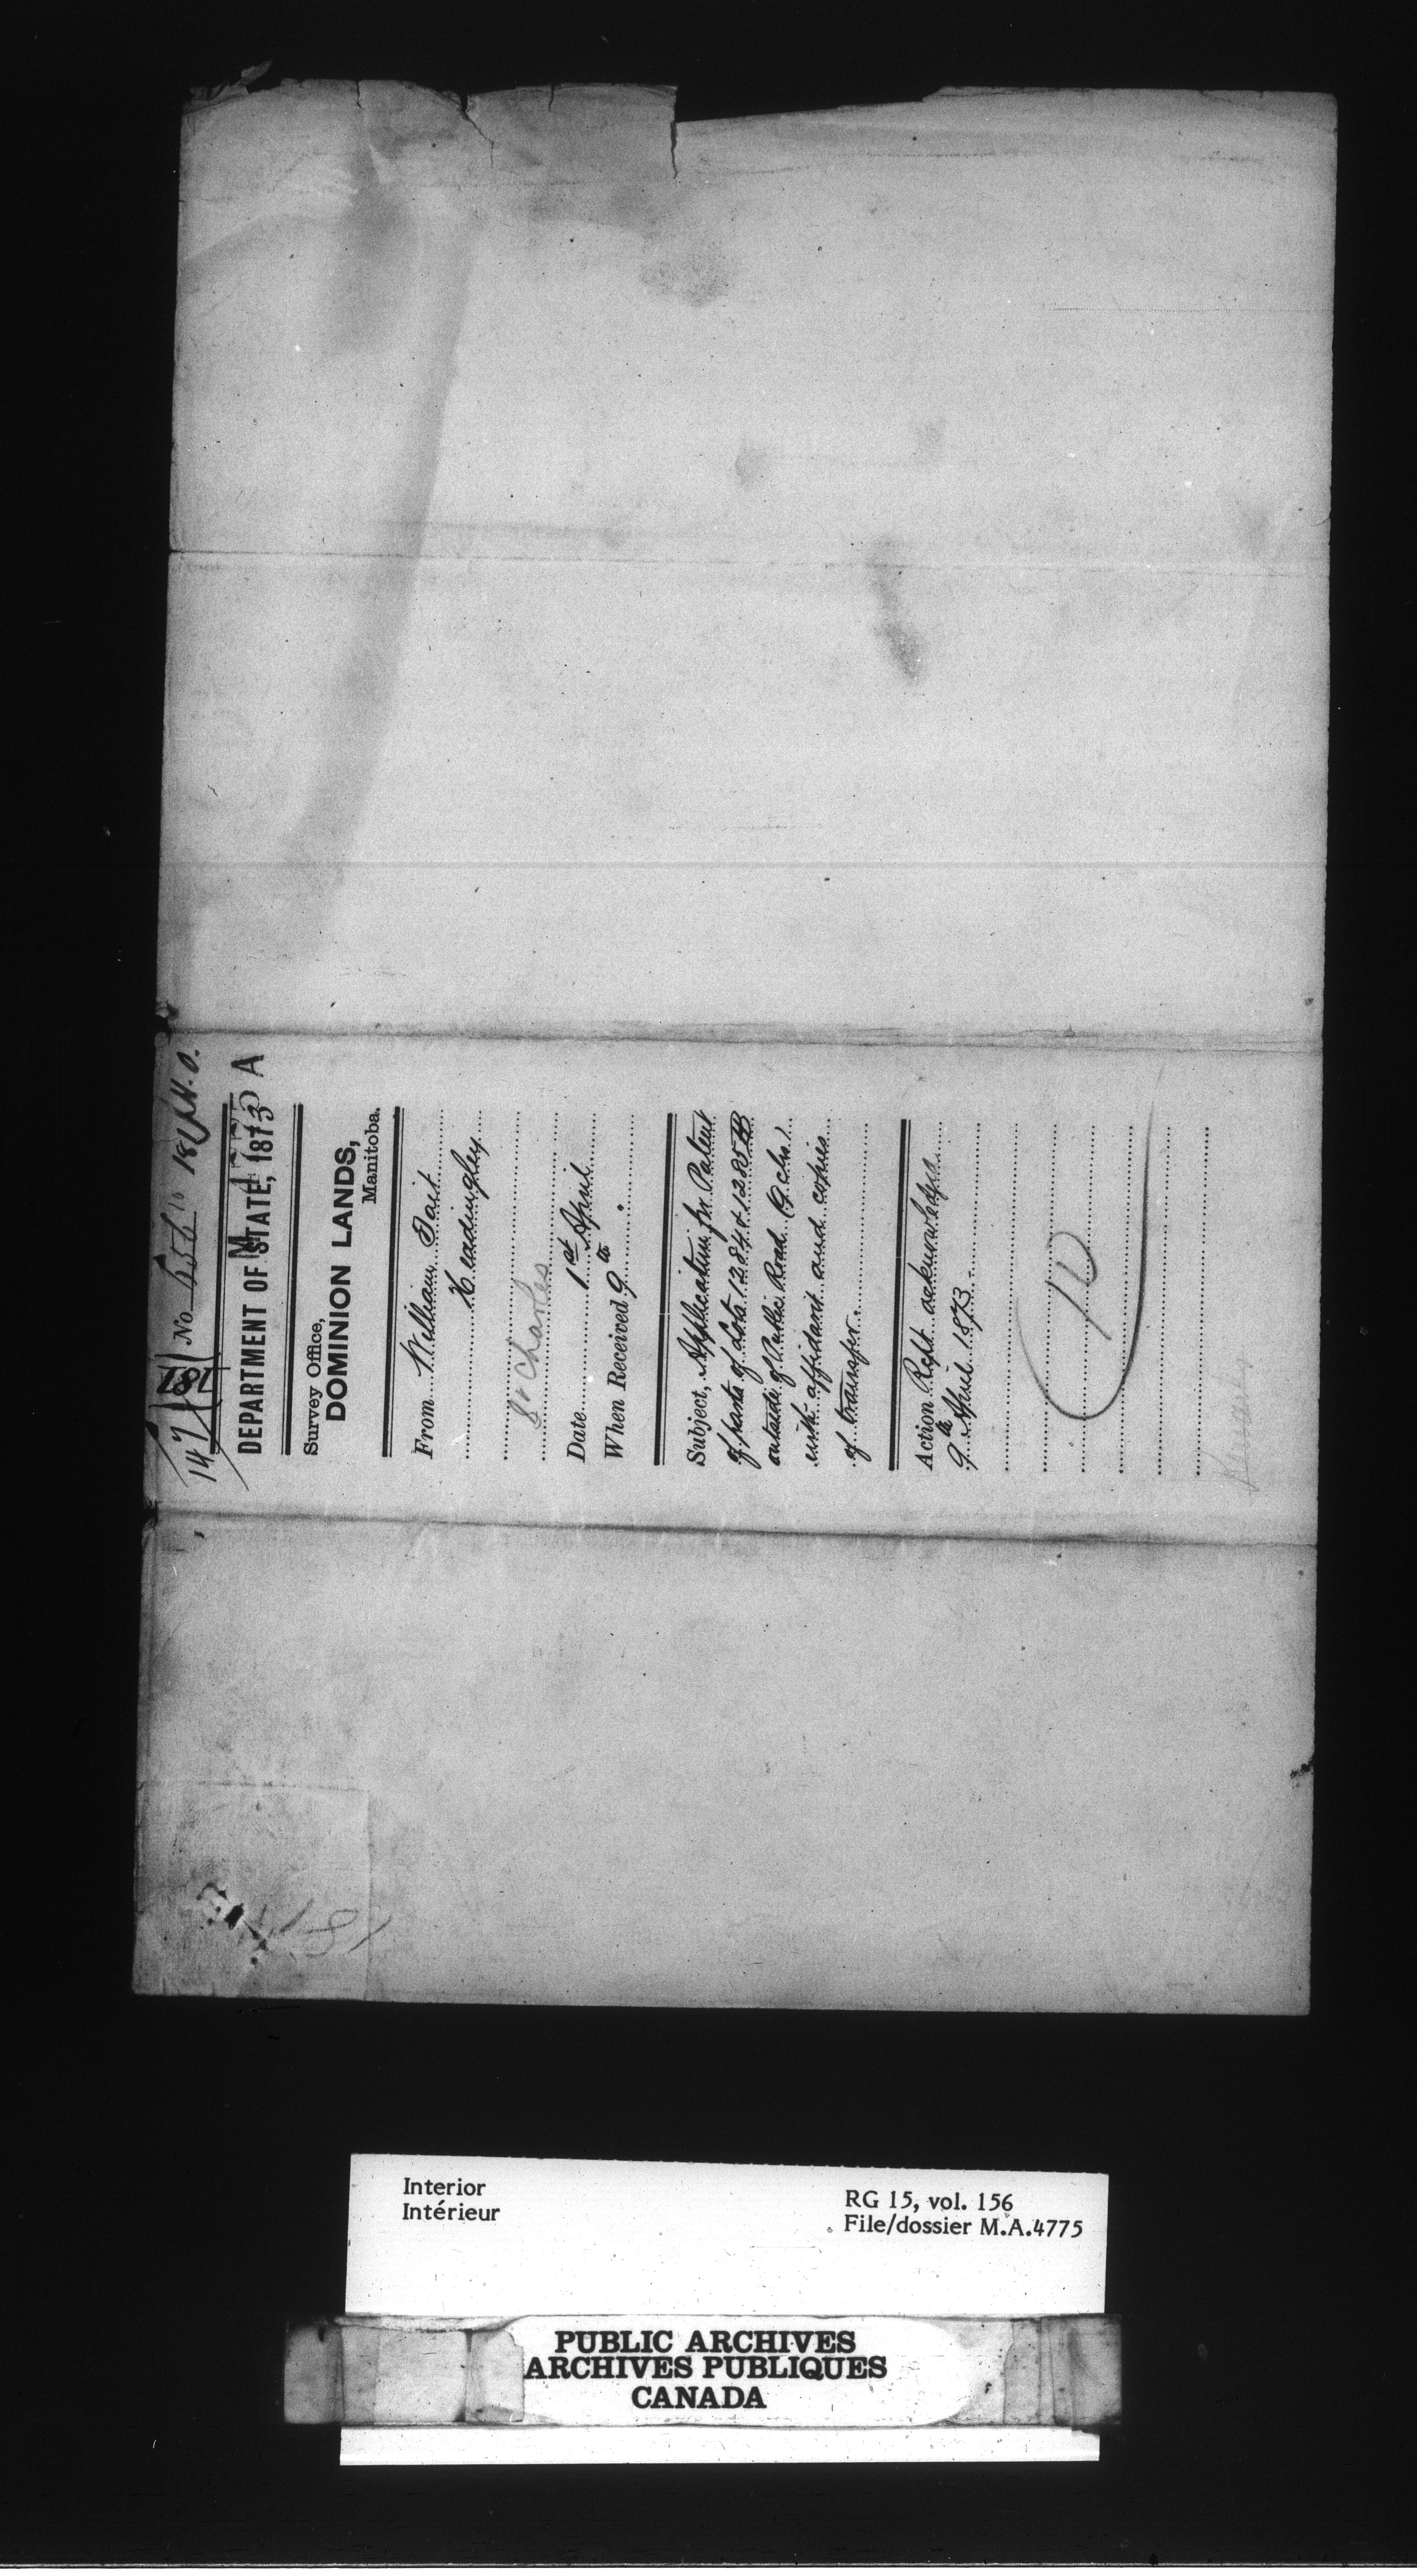 147 181 No 656
DEPARTMENT OF STATE, 1873 A
Survey Office,
DOMINION LANDS,
Manitoba.
From William Tait
Headingley
St Charles
Date 1st April
When Received 9th
Subject, Application for Patent
of parts of Lots 1284 & 1285
outside of Public Road (9 chs.)
with affidavit and copies
of transfer.
Action Rept. acknowledged
9th April 1873.
181
Interior
Intérieur
RG 15, vol. 156
File/dossier M.A.4775
PUBLIC ARCHIVES
ARCHIVES PUBLIQUES
CANADA